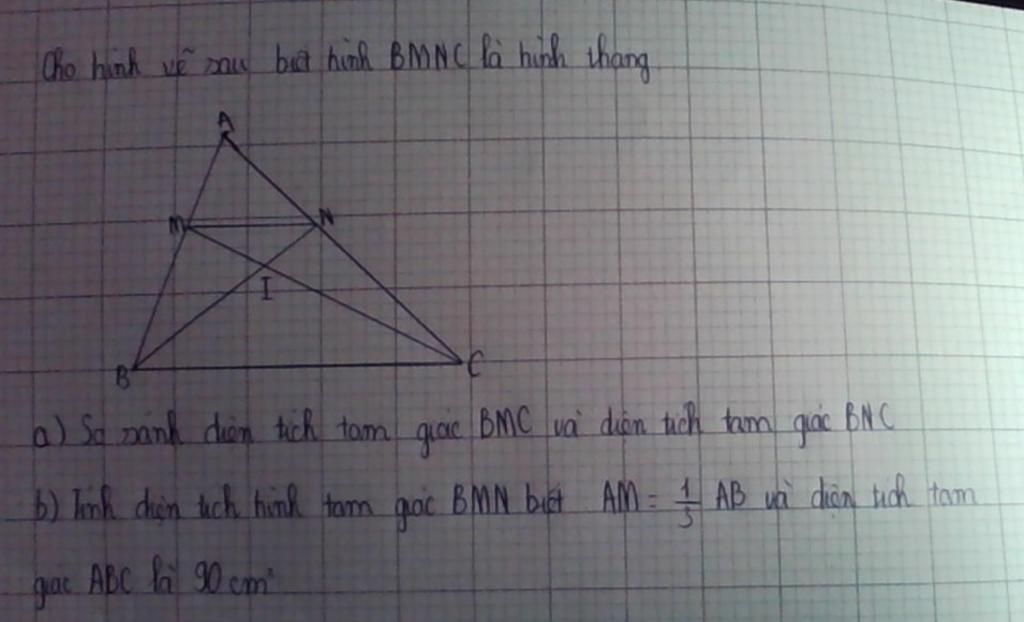 Cho hình vẽ sau biết hình BMNC là hình thang
A
M N
I
B C
a) So sánh diện tích tam giác BMC và diện tích tam giác BNC
b) Tính diện tích hình tam góc BMN biết AM = 1/3 AB và diện tích tam
giác ABC là 90 cm²